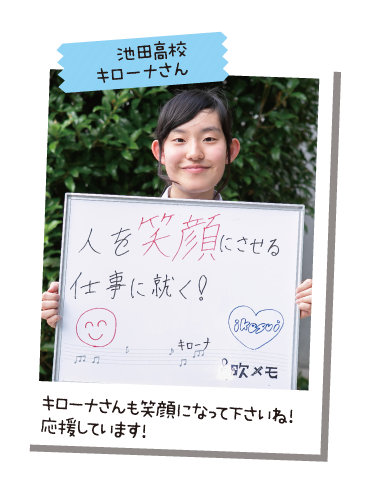 池田高校
キローナさん
人を笑顔にさせる
仕事に就く!
ikesui
キローナ
吹メモ
キローナさんも笑顔になって下さいね!
応援しています!